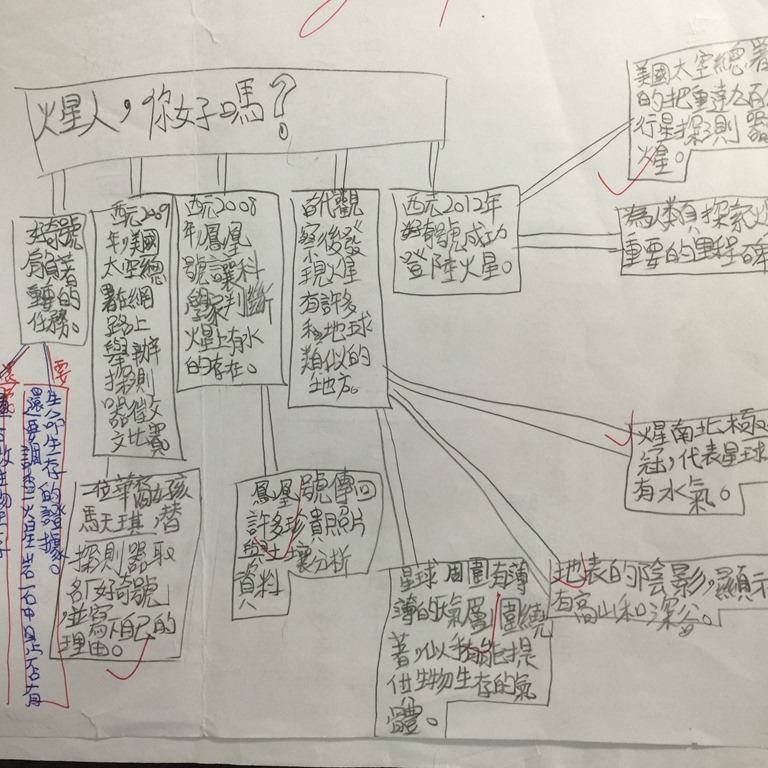 火星人，你好嗎？
好奇號
肩負著
重要的
任務。
西元2009
年，美國
太空總
署在網
路上
舉辦
探測
器徵
文比賽
西元2008
年，鳳凰
號讓科
學家判斷
火星上有水
的存在。
古代觀
察後發
現火星
有許多
和地球
類似的
土地方。
西元2012年
好奇號成功
登陸火星。
美國太空總署
的把重達九百
行星探測器
火星。
為人類探索火
重要的里程碑
火星南北極
冠，代表星球
有水氣。
地表的陰影，顯示
有高山和深谷。
星球周圍有薄
薄的大氣層圍繞
著，似乎能提
供生物生存的氣
體。
鳳凰號傳回
許多珍貴照片
與土壤分析
資料
一位華裔女孩
馬天琪替
探測器取
名「好奇號」
，並寫下自己的
理由。
要
生命生存的證據。
還要調查火星岩石中是否有